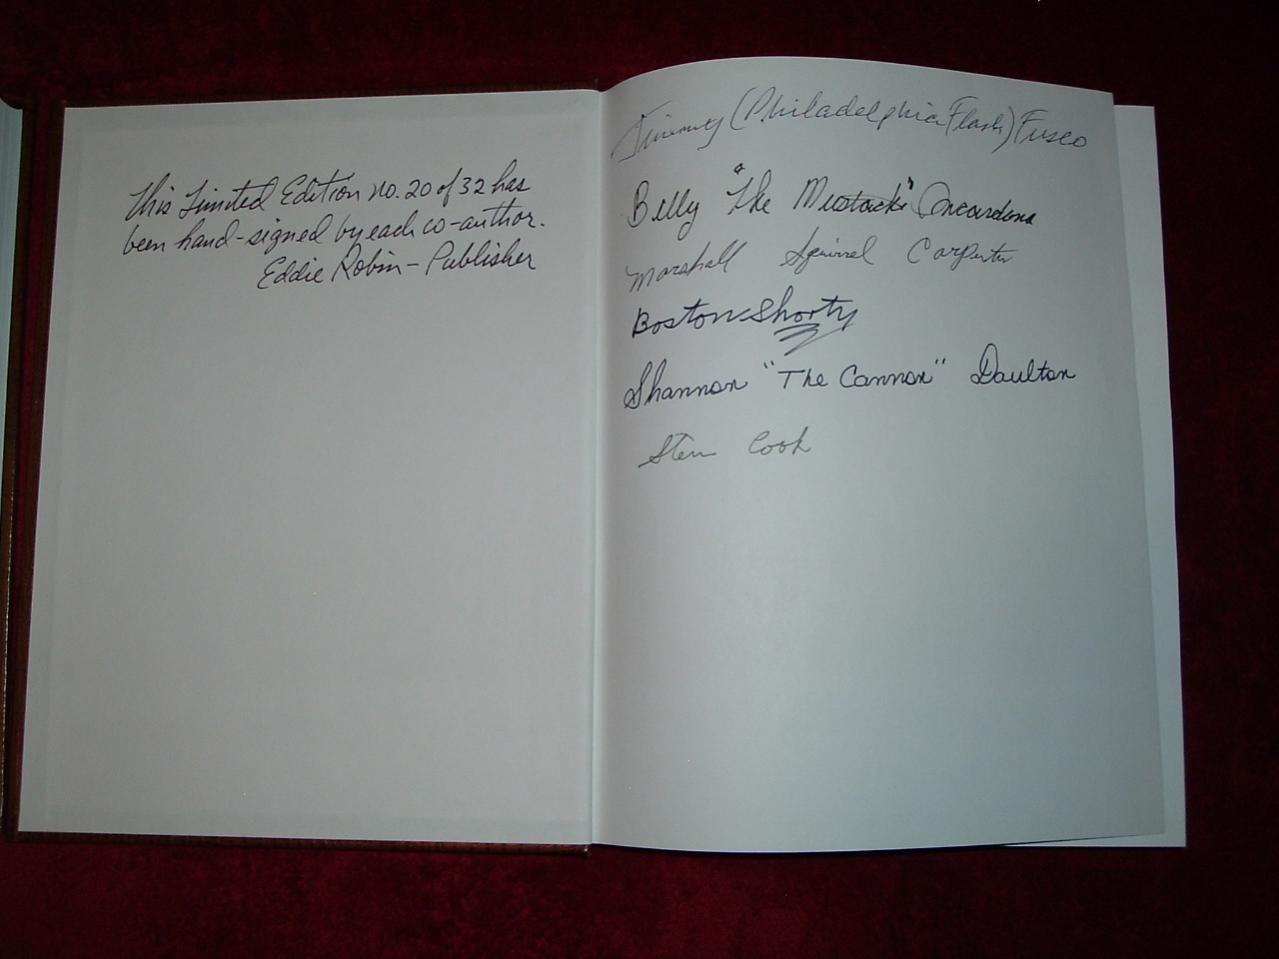 This Limited Edition no. 20 of 32 has
been hand-signed by each co-author.
Eddie Robin - Publisher
Jimmy (Philadelphia Flash) Fusco
Billy "The Mustache"
Marshall Squirrel Carpenter
Boston Shorty
Shannon "The Cannon" Daulton
Cook